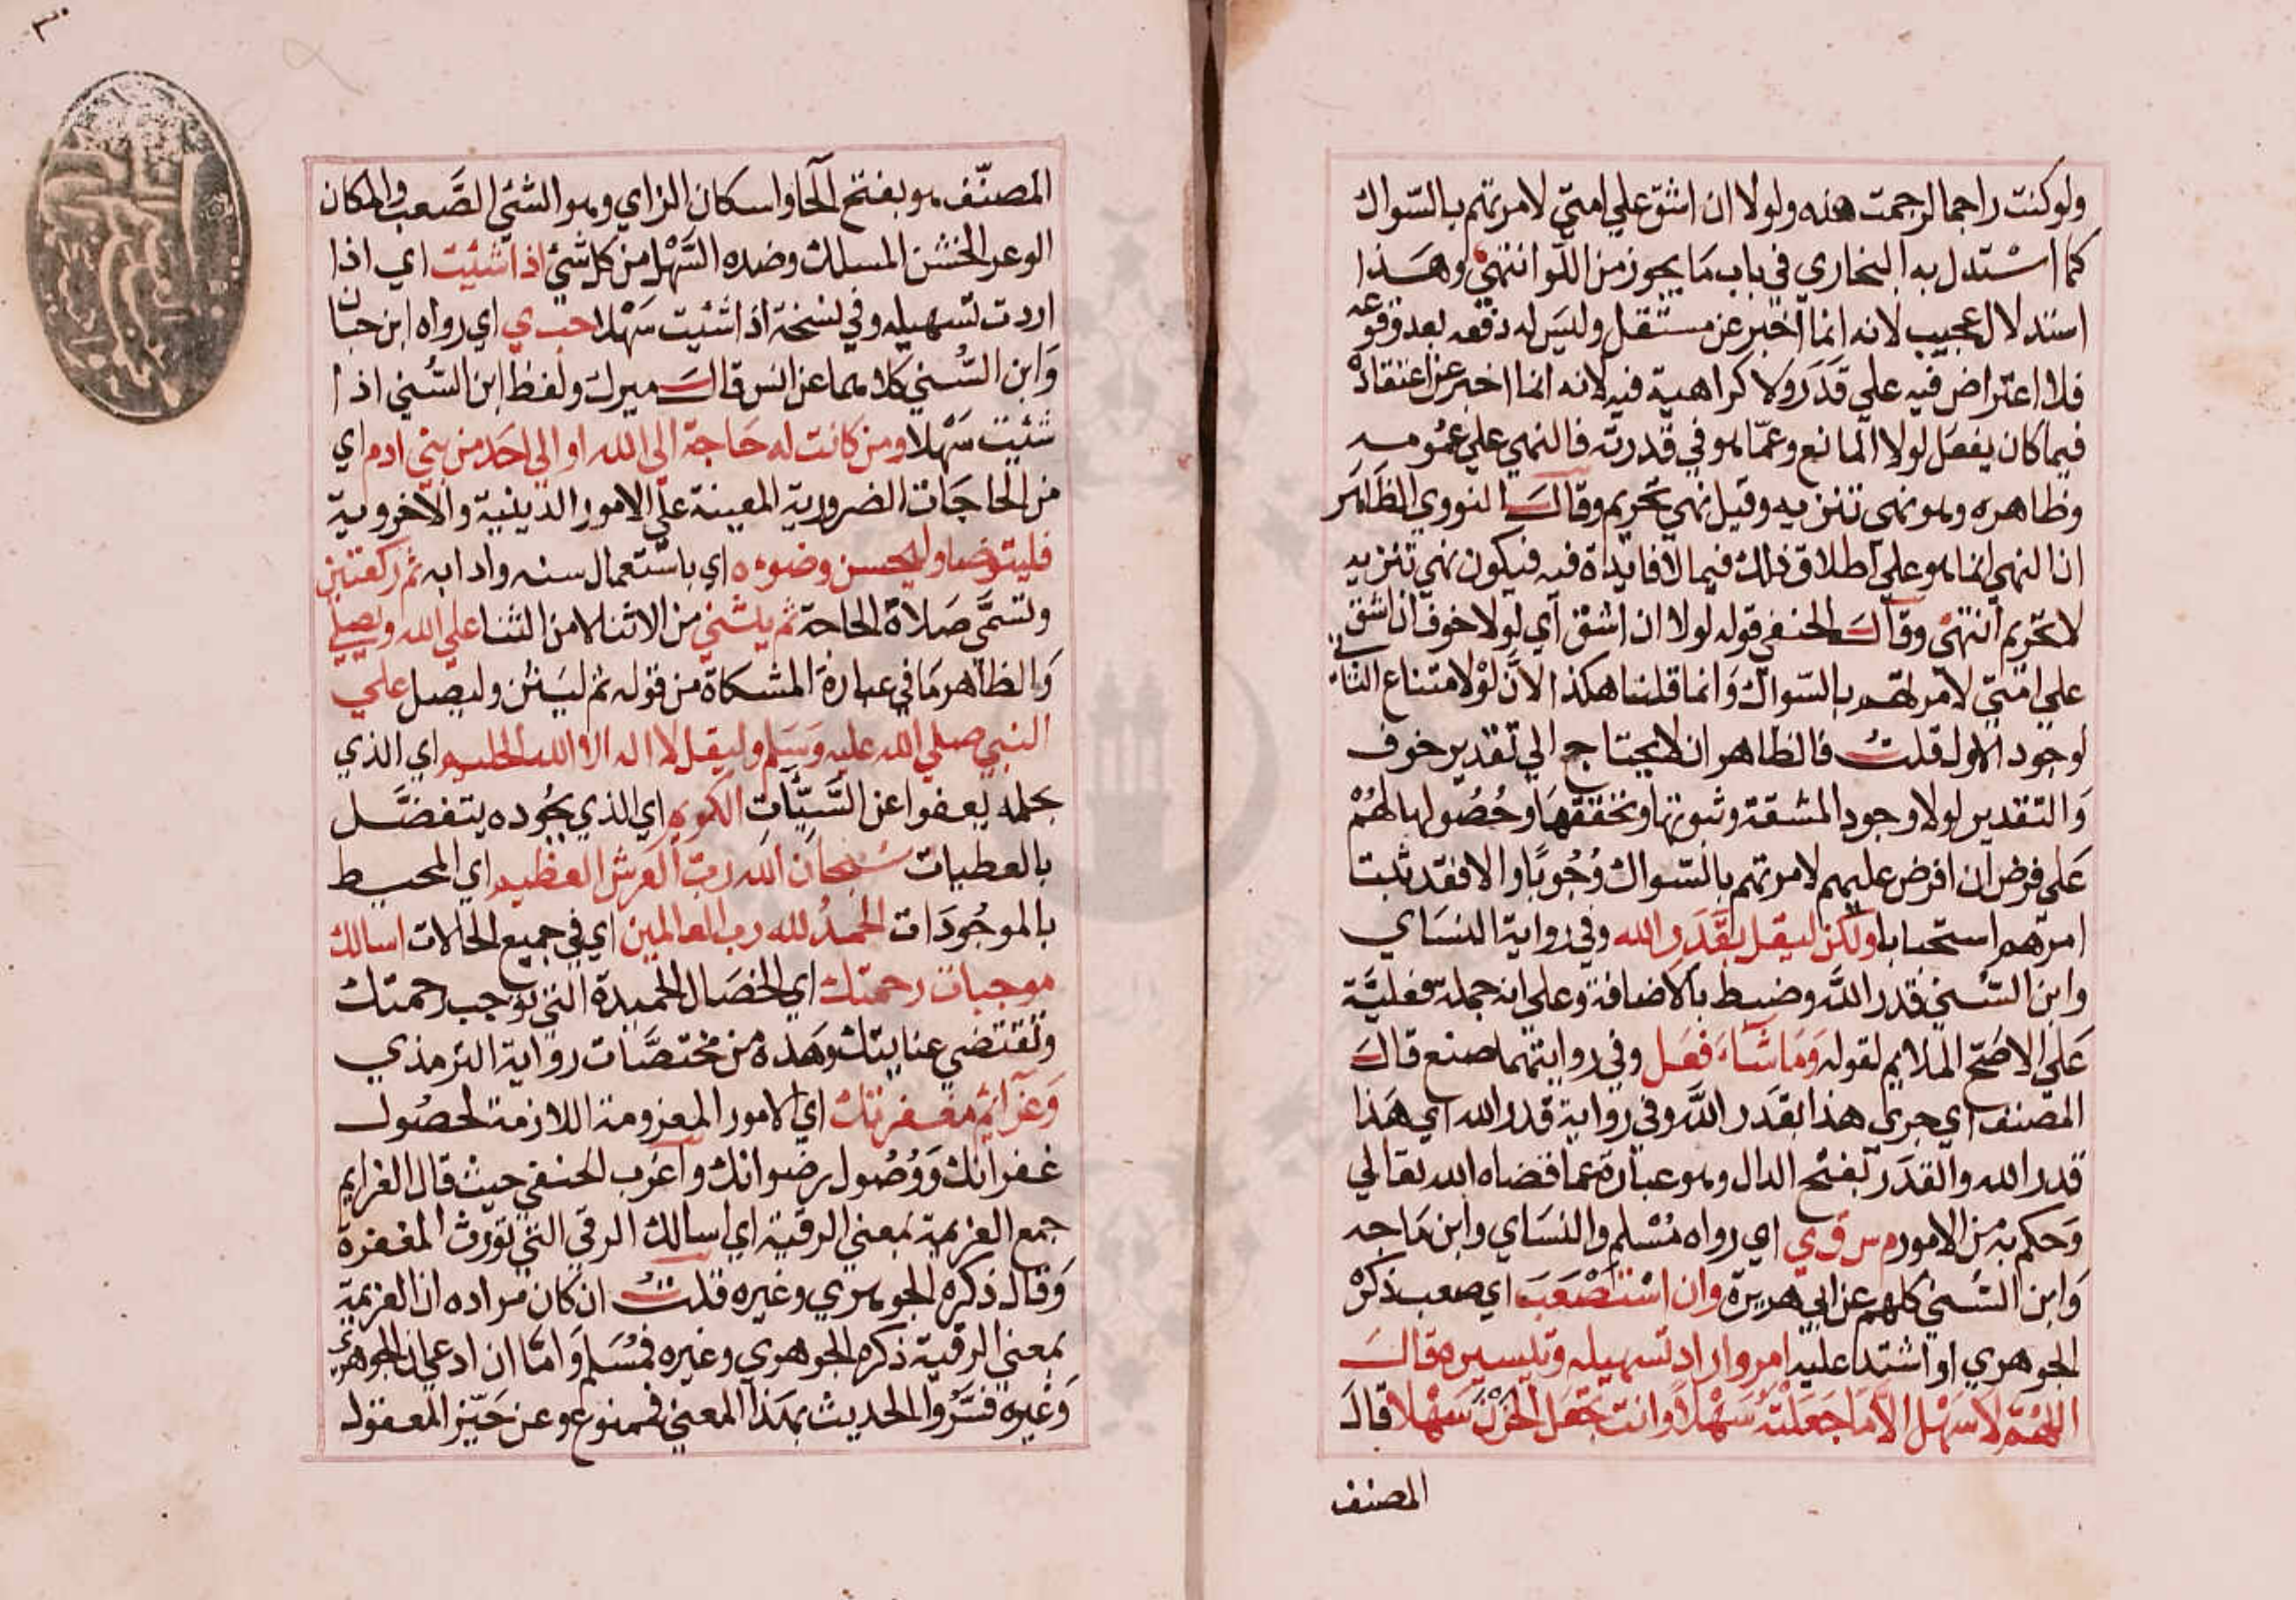 ولو كنت راجما لرجمت هذه ولولا ان اشق علي امتي لامرتهم بالسّواك
كما اسْتدل به البخاري في باب مَا يجوز من اللّو انتهيٰ وهَذا
استدلال عجيب لانه انما اخبر عن مستقبل وليس له دفعه بعد وقوعه
فلا اعتراض فيه علي قَدَر ولا كراهية فيه لانه انما اخبر عن اعتقاده
فيما كان يفعَل لولا المانع وعمّا هو في قدرته فالنهي علي عمُومه
وظاهره وهو نهي تنزيه وقيل نهي تحريم وقالَ النووي الظاهر
ان النهي انما هو علي اطلاق ذلك فيما لا فايدة فيه فيكون نهي تنزيه
لا تحريم انتهيٰ وقالَ الحنفي قوله لولا ان اشق اي لولا خوف ان اشق
علي امتي لامرتهم بالسّواك وَانما قلنا هكذا لانّ لوْلا متناع الثاني
لوجود الاول قلتُ فالظاهر ان لا يحتاج الي تقدير خوف
وَالتقدير لولا وجود المشقة وثبوتها وتحققهَا وحُصُولها لهُمْ
عَلى فرض ان افرض عليهم لامرتهم بالسّواك وُجُوبًا والا فقد ثبت
امرهم استحبابا ولكن ليقل بقَدَر الله وفي رواية النسَاي
وابن السّني قدر اللّه وضبط بالاضافة وعلى انه جملة فعليَّة
عَلى الاصَح الملايم لقوله وَمَا شاءَ فعَل وفي روايتهما صنع قالَ
المصنف اي جرى هذا بقَدَر اللّه وفي رواية قدر الله اي هَذا
قدر الله والقدَر بفتح الدال وهو عبارة عما قضاه الله تعالي
وَحكم به من الامور م س ق ي اي رواه مُسْلم والنسَاي وابن مَاجه
وَابن السّني كلهم عن ابي هريرة وان اسْتصْعَبَ اي صعب ذكرْ
الجوهري او اشتد عليه امر واراد تسهيله وتيسيره قالَ
اللّهُمَّ لا سَهْل الّا مَا جَعَلْتَه سَهْلًا وانت تجْعَل الحَزْنَ سَهْلا قالَ
المصنف
المصنّف هو بفتح الحا واسكان الزاي وهو الشئي الصَّعب والمكان
الوعر الخشن المسلك وضده السّهْل من كل شيئ اذا شئت اي اذا
اردت تسهيله وفي نسخة اذا شئيت سَهْلا حب ي اي رواه ابن حبان
وَابن السُّني كلاهما عن انس قالَ ميرك ولفظ ابن السُّني اذا
شئيت سَهْلا ومن كانت له حَاجة الى الله او الي احَد من بني ادم اي
من الحاجَات الضرورية المعينة على الامور الدينية والاخروية
فليتوضا وليحسن وضوءه اي باستعمال سننه وادابه ثم ركعتين
وتسمَّى صَلاة الحاجة ثم يثني من الاثنا لا من الثنا علي الله ويصلي
وَالظاهر مَا في عبارة المشكاة من قوله ثم ليَثن وليصل علي
النبي صلي الله عليه وَسَلم وليقل لا اله الا الله الحليم اي الذي
بحلمه يعفوا عن السَّيّاٰت الكريم اي الذي بجُوده يتفضَّل
بالعطيات سُبحان اللّه ربّ العرش العظيم اي المحيط
بالموجُودَات الحمدُ لله رب العالمين اي في جميع الحالات اسالك
موجبات رحمتك اي الخصَال الحميدة التي توجب رحمتك
وتقتضي عنايتك وهَذه من مختصَّات رواية الترمذي
وَعزائم مغفرتك اي الامور المعزومة اللازمة لحصُول
غفرانك وَوُصُول رضوانك واغرب الحنفي حيث قال العزايم
جمع العزيمة بمعني الرقية اي اسالك الرقي التي تورث المغفرة
وَقال ذكره الجوهري وغيره قلتُ ان كان مراده ان العزيمة
بمعني الرقية ذكره الجوهري وغيره فمُسَلم وَامّا ان ادعي ان الجوهري
وَغيره فسَّروا الحديث بهَذا المعني فممنوع وعن حَيّز المعقول